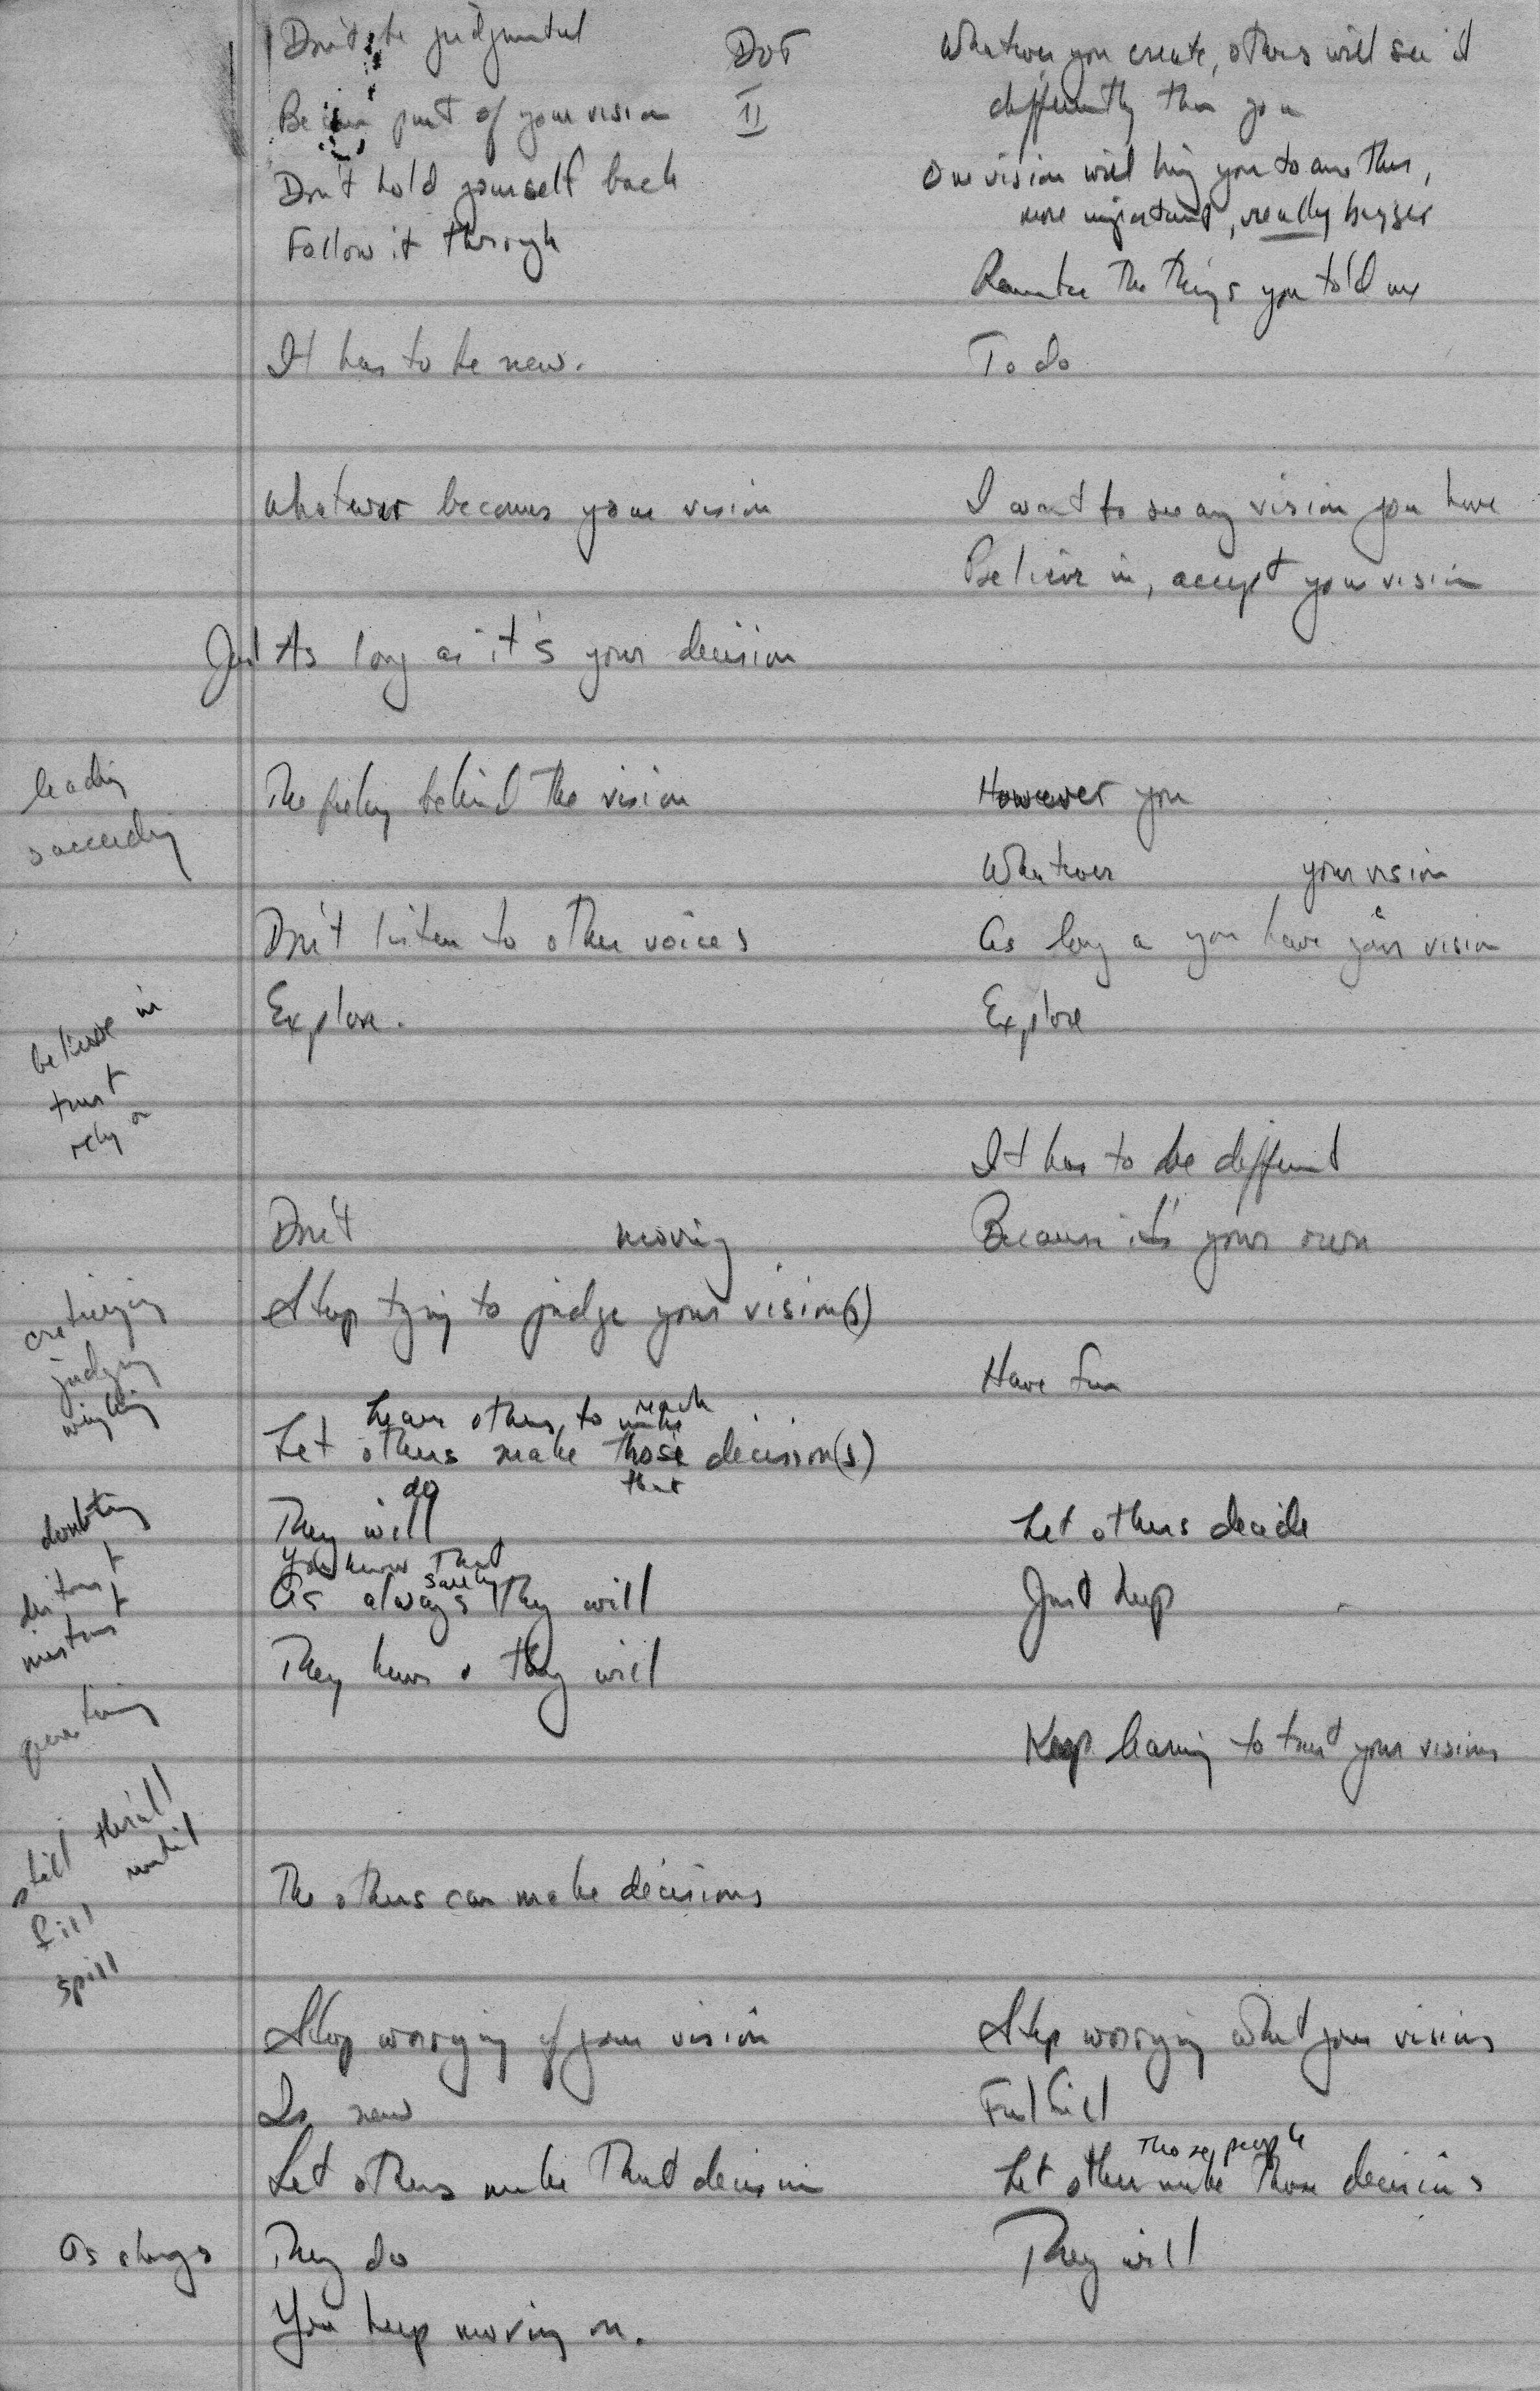 Don't be judgmental
DOT
II
Be part of your vision
Don't hold yourself back
Follow it through
It has to be new.
Whatever becomes your vision
Just As long as it's your decision
leading
succeeding
The feeling behind the vision
Don't listen to other voices
Explore.
believe in
trust
rely on
Don't moving
Stop trying to judge your vision(s)
criticizing
judging
weighing
Leave others to make reach
Let others make those decision(s)
that
do
They will
you know that
As always surely they will
They have & they will
doubting
distrust
mistrust
questioning
still thrill
fill until
spill
The others can make decisions
Stop worrying if your vision
Is new
Let others make that decision
As always
They do
You keep moving on.
Whatever you create, others will see it
differently than you
One vision will bring you to another,
more important, really bigger
Remember the things you told me
To do
I want to see any vision you have
Believe in, accept your vision
However you
Whatever your vision
As long as you have your vision
Explore
It has to be different
Because it's your own
Have fun
Let others decide
Just keep
Keep learning to trust your visions
Stop worrying what your visions
Fulfill
Those people
Let others make those decisions
They will